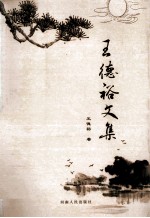 王德裕文集
王德裕 著
湖南人民出版社